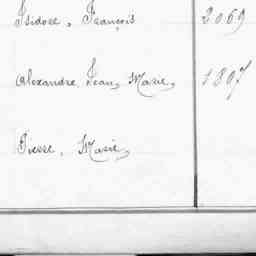 Isidore, François 2069
Alexandre, Jean, Marie, 1807
Pierre, Marie,